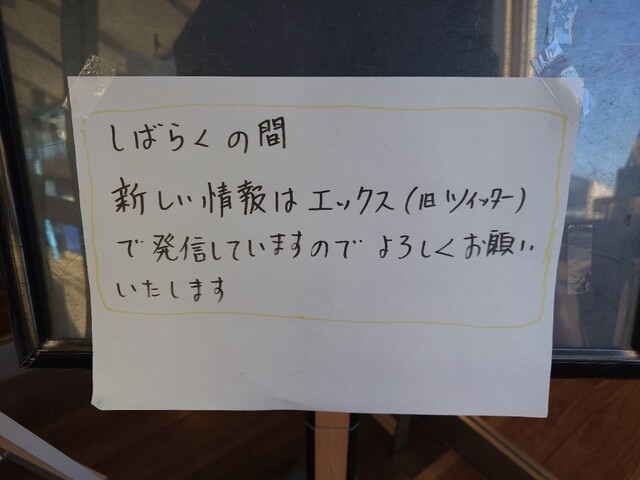 しばらくの間
新しい情報はエックス(旧ツイッター)
で発信していますのでよろしくお願い
いたします